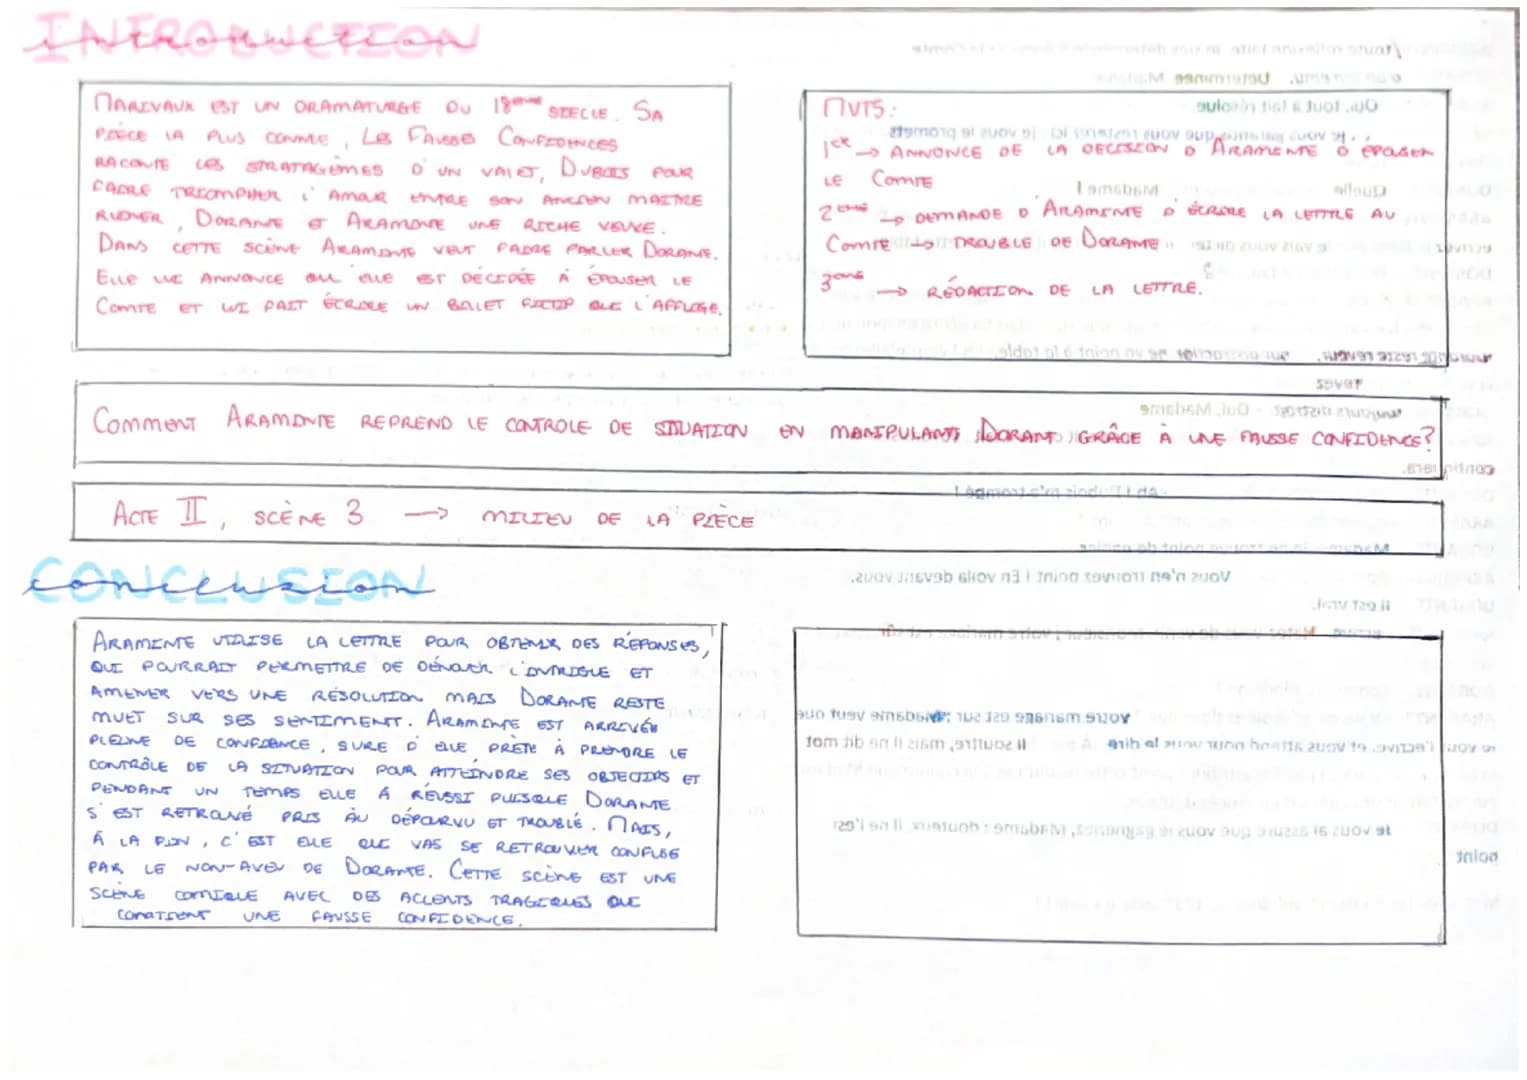 INTRODUCTION
MARIVAUX EST UN DRAMATURGE DU 18ème SIECLE. SA
PIÈCE LA PLUS CONNUE, LES FAUSSES CONFIDENCES
RACONTE LES STRATAGÈMES D'UN VALET, DUBOIS POUR
FAIRE TRIOMPHER L'AMOUR ENTRE SON ANCIEN MAITRE
RUINER, DORANTE ET ARAMINTE UNE RICHE VEUVE.
DANS CETTE SCÈNE ARAMINTE VEUT FAIRE PARLER DORANTE.
ELLE LUI ANNONCE QU'ELLE EST DÉCIDÉE À ÉPOUSER LE
COMTE ET LUI FAIT ÉCRIRE UN BILLET FICTIF QUI L'AFFLIGE.
MVTS:
1er → ANNONCE DE LA DECISION D'ARAMINTE D'ÉPOUSER
LE COMTE
2ème → DEMANDE D'ARAMINTE D'ÉCRIRE LA LETTRE AU
COMTE → TROUBLE DE DORANTE
3ème → RÉDACTION DE LA LETTRE.
COMMENT ARAMINTE REPREND LE CONTROLE DE SITUATION EN MANIPULANT DORANT GRÂCE À UNE FAUSSE CONFIDENCE?
ACTE II, SCÈNE 3 → MILIEU DE LA PIÈCE
CONCLUSION
ARAMINTE UTILISE LA LETTRE POUR OBTENIR DES RÉPONSES,
QUI POURRAIT PERMETTRE DE DÉNOUER L'INTRIGUE ET
AMENER VERS UNE RÉSOLUTION MAIS DORANTE RESTE
MUET SUR SES SENTIMENT. ARAMINTE EST ARRIVÉE
PLEINE DE CONFIANCE, SURE D'ELLE PRÊTE À PRENDRE LE
CONTRÔLE DE LA SITUATION POUR ATTEINDRE SES OBJECTIFS ET
PENDANT UN TEMPS ELLE A RÉUSSI PUISQUE DORANTE
S'EST RETROUVÉ PRIS AU DÉPOURVU ET TROUBLÉ. MAIS,
À LA FIN, C'EST ELLE QUI VAS SE RETROUVER CONFUSE
PAR LE NON-AVEU DE DORANTE. CETTE SCÈNE EST UNE
SCÈNE COMIQUE AVEC DES ACCENTS TRAGIQUES QUI
CONTIENT UNE FAUSSE CONFIDENCE.